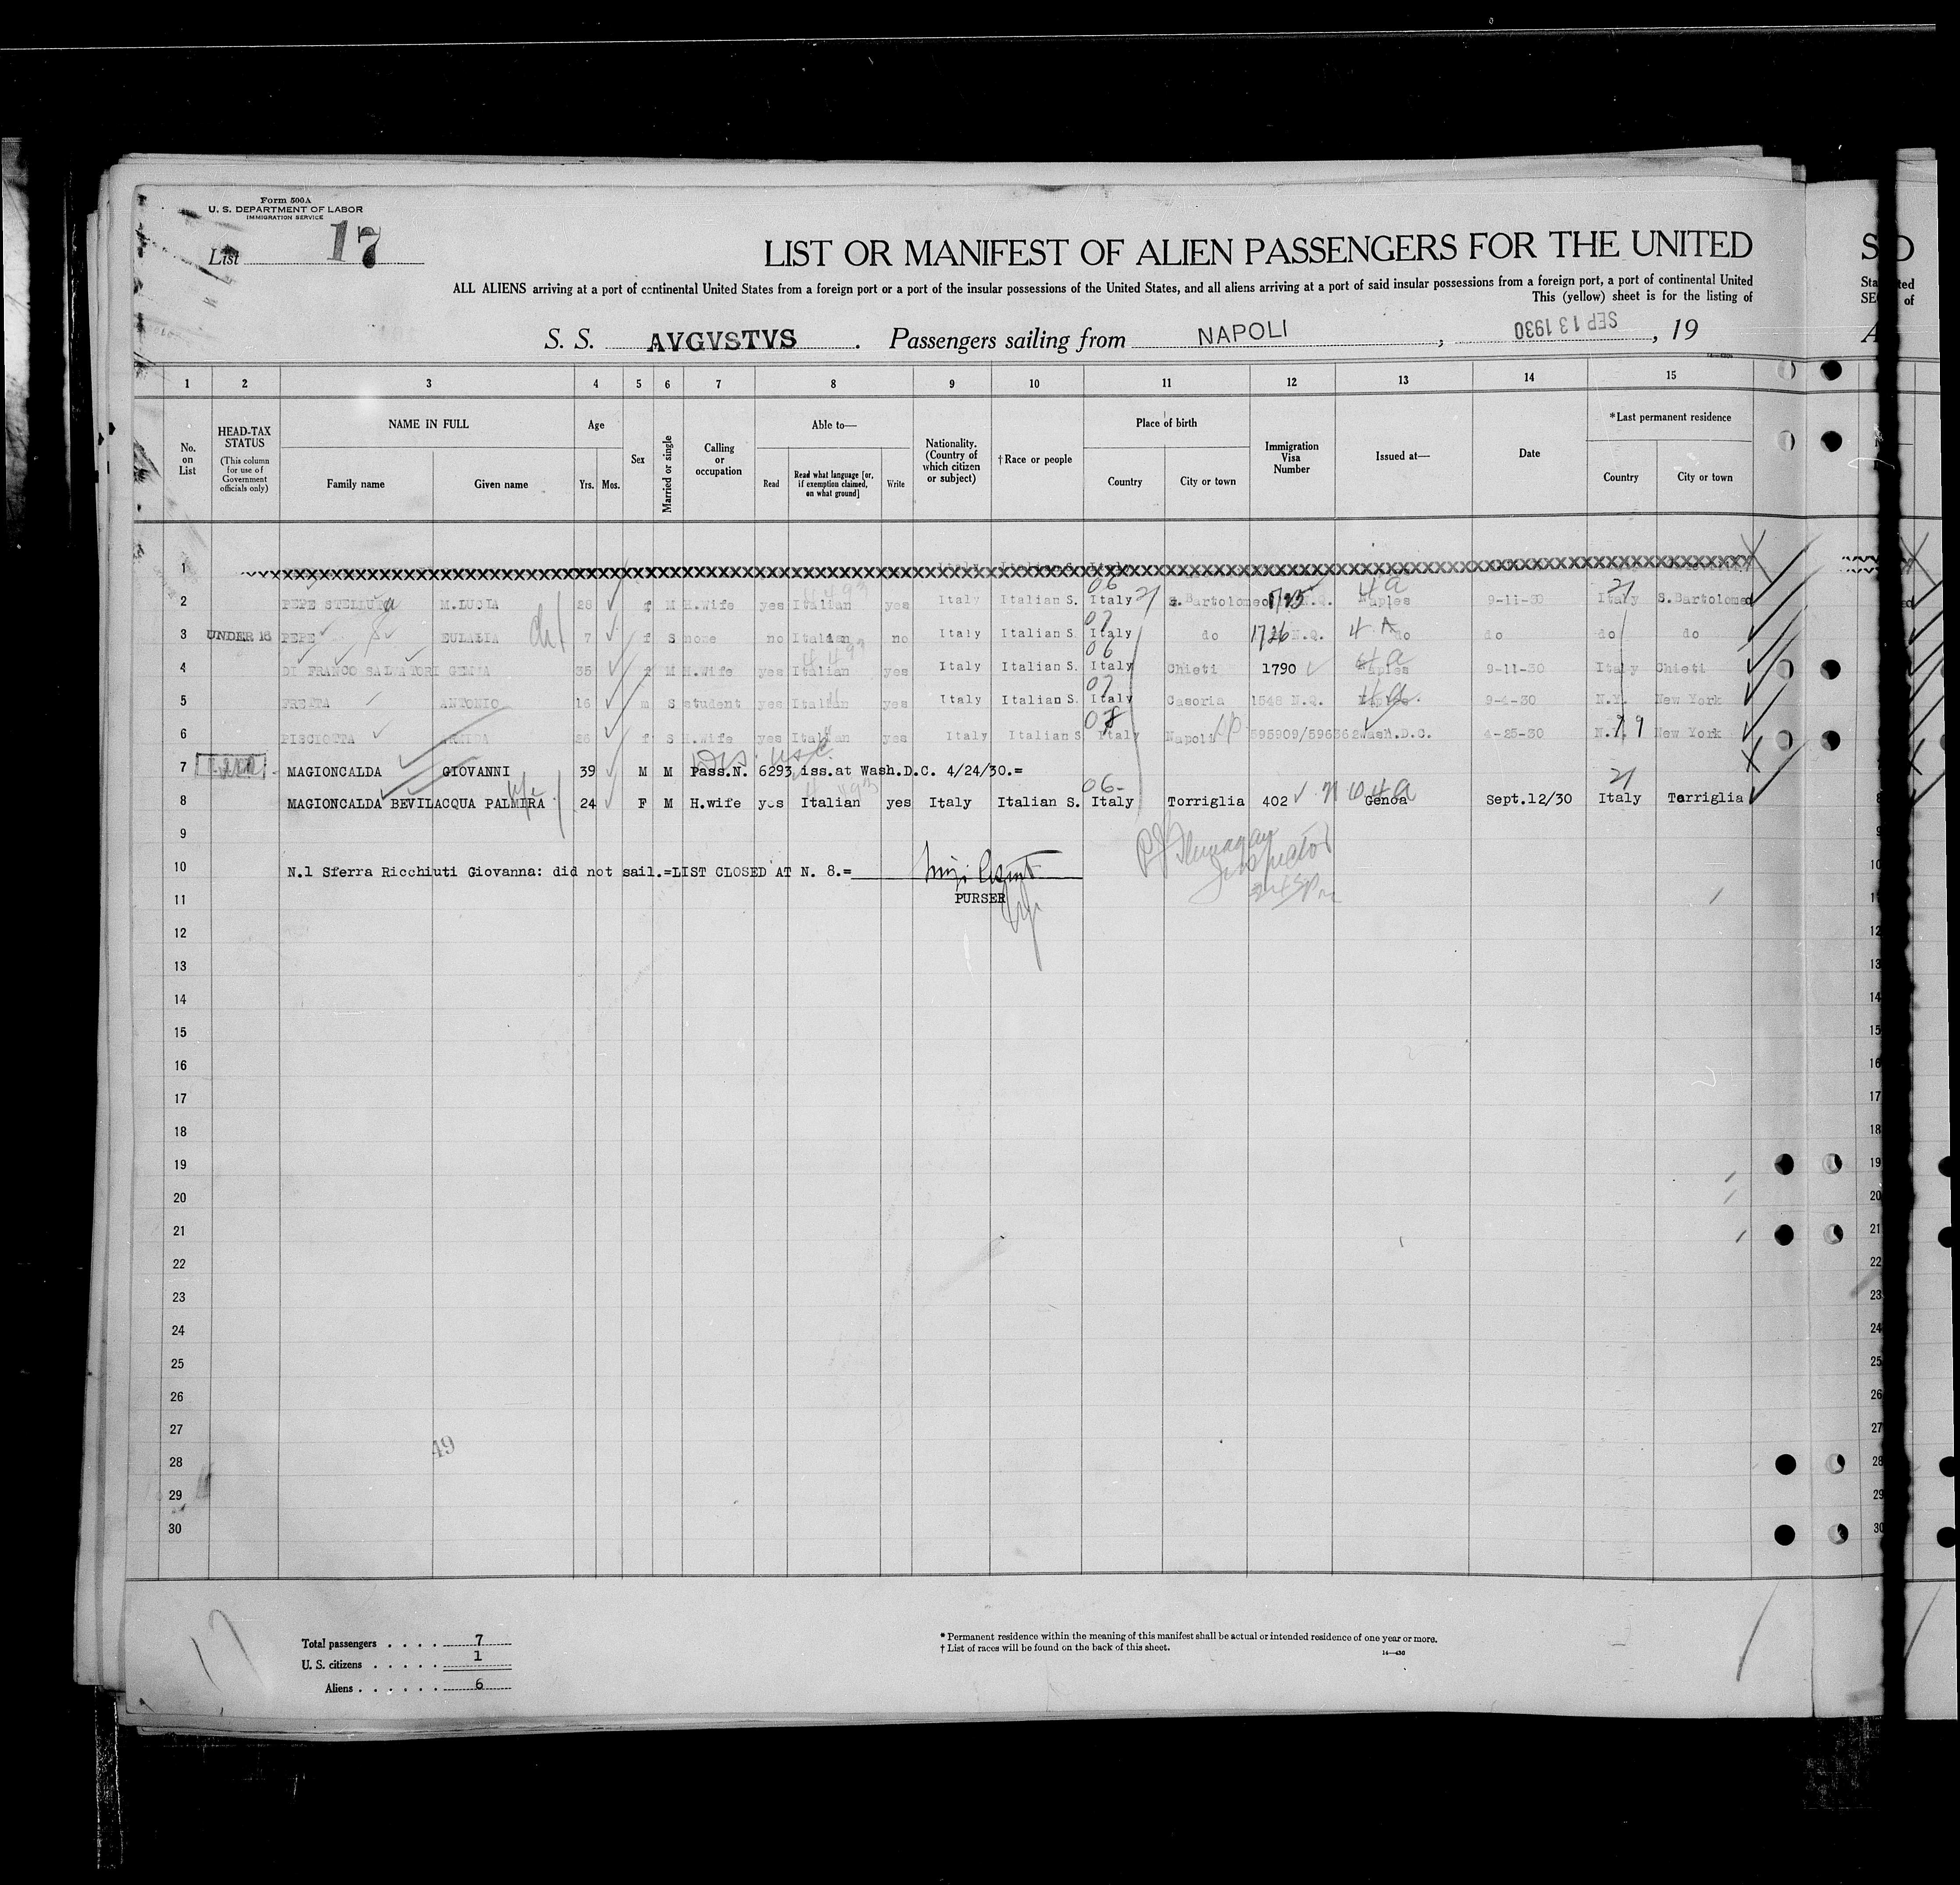 Form 500A
U. S. DEPARTMENT OF LABOR
IMMIGRATION SERVICE
List 17
LIST OR MANIFEST OF ALIEN PASSENGERS FOR THE UNITED
ALL ALIENS arriving at a port of continental United States from a foreign port or a port of the insular possessions of the United States, and all aliens arriving at a port of said insular possessions from a foreign port, a port of continental United
This (yellow) sheet is for the listing of
S. S. AVGVSTVS . Passengers sailing from NAPOLI , SEP 13 1930 , 19
1 2 3 4 5 6 7 8 9 10 11 12 13 14 15
No. on List
HEAD-TAX STATUS (This column for use of Government officials only)
NAME IN FULL
Family name Given name
Age
Yrs. Mos.
Sex
Married or single
Calling or occupation
Able to—
Read Read what language [or, if exemption claimed, on what ground] Write
Nationality. (Country of which citizen or subject)
†Race or people
Place of birth
Country City or town
Immigration Visa Number
Issued at—
Date
*Last permanent residence
Country City or town
1
2 PEPE STELLUTA M.LUCIA 28 f M H.wife yes Italian yes Italy Italian S. Italy S.Bartolomeo N.Q. Naples 9-11-30 Italy S.Bartolomeo
3 UNDER 16 PEPE EULALIA 7 f S none no Italian no Italy Italian S. Italy do 1726 N.Q. do do do do
4 DI FRANCO SALVATORI GEMMA 35 f M H.wife yes Italian yes Italy Italian S. Italy Chieti 1790 Naples 9-11-30 Italy Chieti
5 FRETTA ANTONIO 16 m S student yes Italian yes Italy Italian S. Italy Casoria 1548 N.Q. Naples 9-4-30 N.Y. New York
6 PISCIOTTA 26 f S H.wife yes Italian yes Italy Italian S Italy Napoli 595909/596362 Wash.D.C. 4-25-30 N.Y. New York
7 MAGIONCALDA GIOVANNI 39 M M Pass.N. 6293 iss.at Wash.D.C. 4/24/30.=
8 MAGIONCALDA BEVILACQUA PALMIRA 24 F M H.wife yes Italian yes Italy Italian S. Italy Torriglia 402 Genoa Sept.12/30 Italy Torriglia
9
10 N.1 Sferra Ricchiuti Giovanna: did not sail.=LIST CLOSED AT N. 8.=
11 PURSER
12
13
14
15
16
17
18
19
20
21
22
23
24
25
26
27
49
28
29
30
Total passengers . . . . 7
U. S. citizens . . . . . 1
Aliens . . . . . . 6
* Permanent residence within the meaning of this manifest shall be actual or intended residence of one year or more.
† List of races will be found on the back of this sheet.
14—430